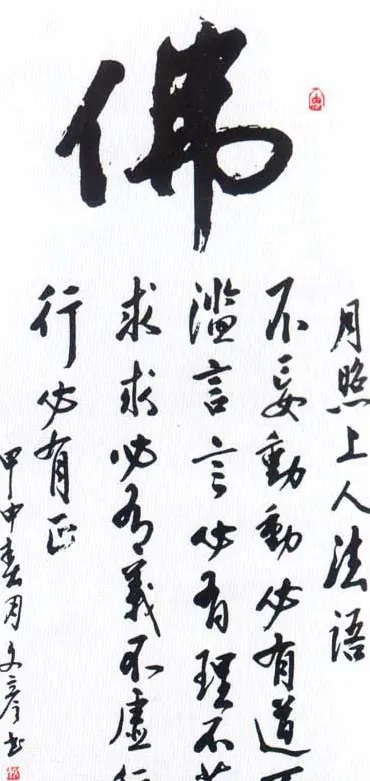 佛
月照上人法語
不妄動動必有道
滥言言必有理不
求求必有義不虛
行必有正
甲申春周文彦书